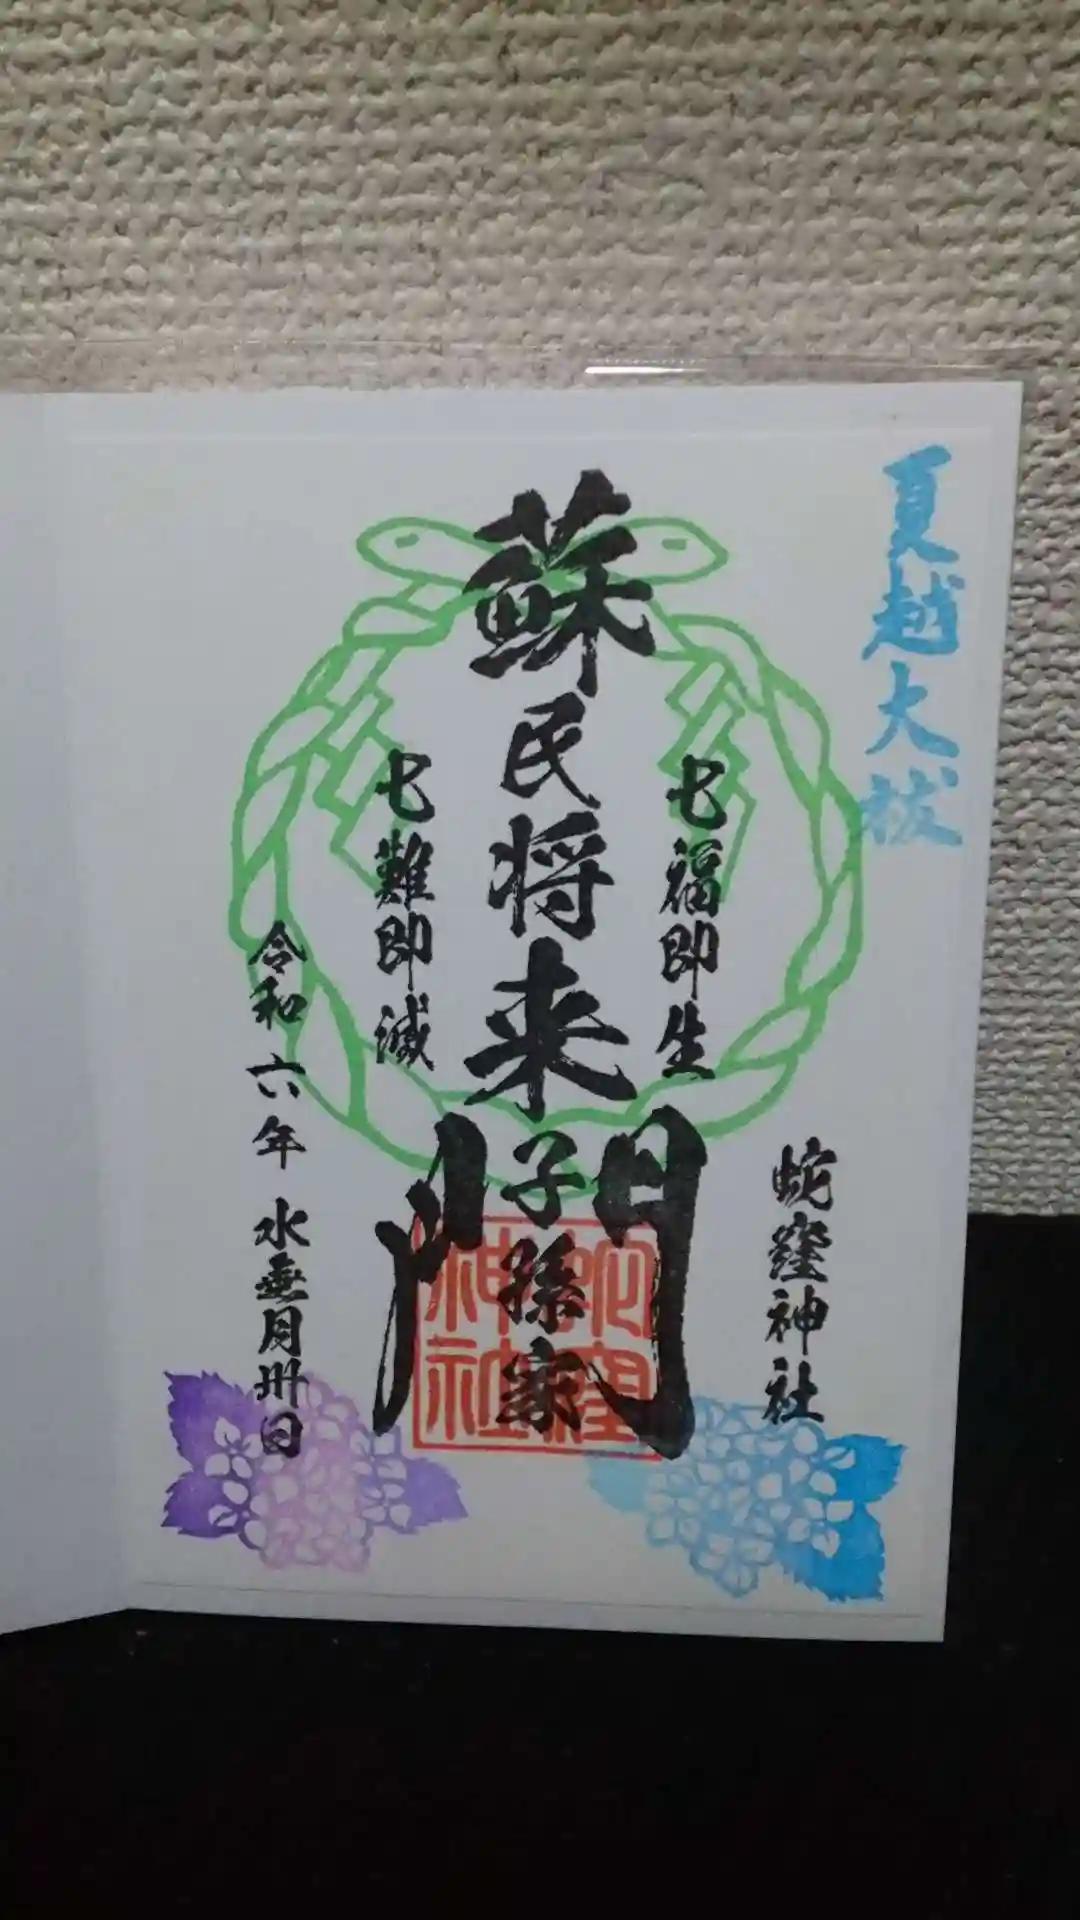 夏越大祓
七福即生
蘇民将来子孫家門
七難即滅
蛇窪神社
令和六年 水無月卅日
蛇窪神社